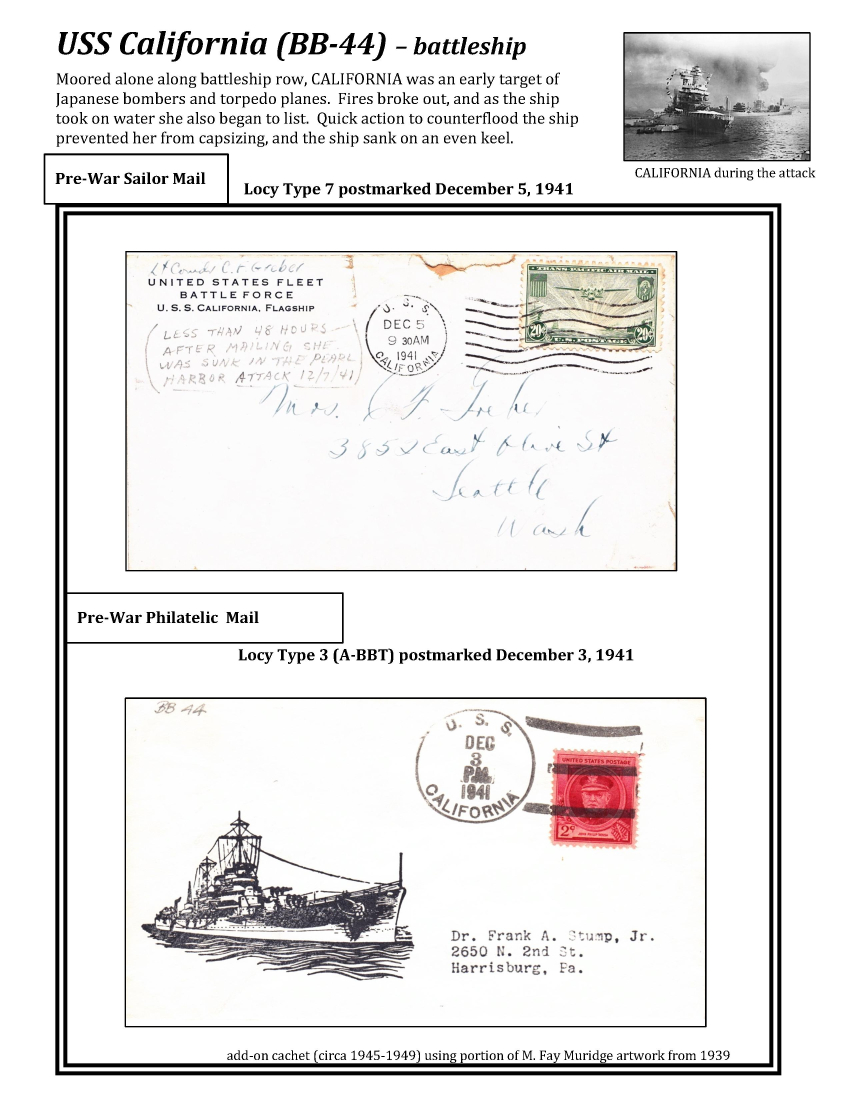 USS California (BB-44) – battleship
Moored alone along battleship row, CALIFORNIA was an early target of
Japanese bombers and torpedo planes.  Fires broke out, and as the ship
took on water she also began to list.  Quick action to counterflood the ship
prevented her from capsizing, and the ship sank on an even keel.
CALIFORNIA during the attack
Pre-War Sailor Mail
Locy Type 7 postmarked December 5, 1941
Lt Comdr C. F. Greber
UNITED STATES FLEET
BATTLE FORCE
U. S. S. CALIFORNIA, FLAGSHIP
(LESS THAN 48 HOURS
AFTER MAILING SHE
WAS SUNK IN THE PEARL
HARBOR ATTACK 12/7/41)
U. S. S.
DEC 5
9 30AM
1941
CALIFORNIA
TRANS-PACIFIC AIR MAIL
20¢ 20¢
U.S. POSTAGE
Mrs. C F Greber
3852 East Olive St
Seattle
Wash
Pre-War Philatelic  Mail
Locy Type 3 (A-BBT) postmarked December 3, 1941
BB 44
U. S. S.
DEC
3
P.M.
1941
CALIFORNIA
UNITED STATES POSTAGE
2¢
JOHN PHILIP SOUSA
Dr. Frank A. Stump, Jr.
2650 N. 2nd St.
Harrisburg, Pa.
add-on cachet (circa 1945-1949) using portion of M. Fay Muridge artwork from 1939